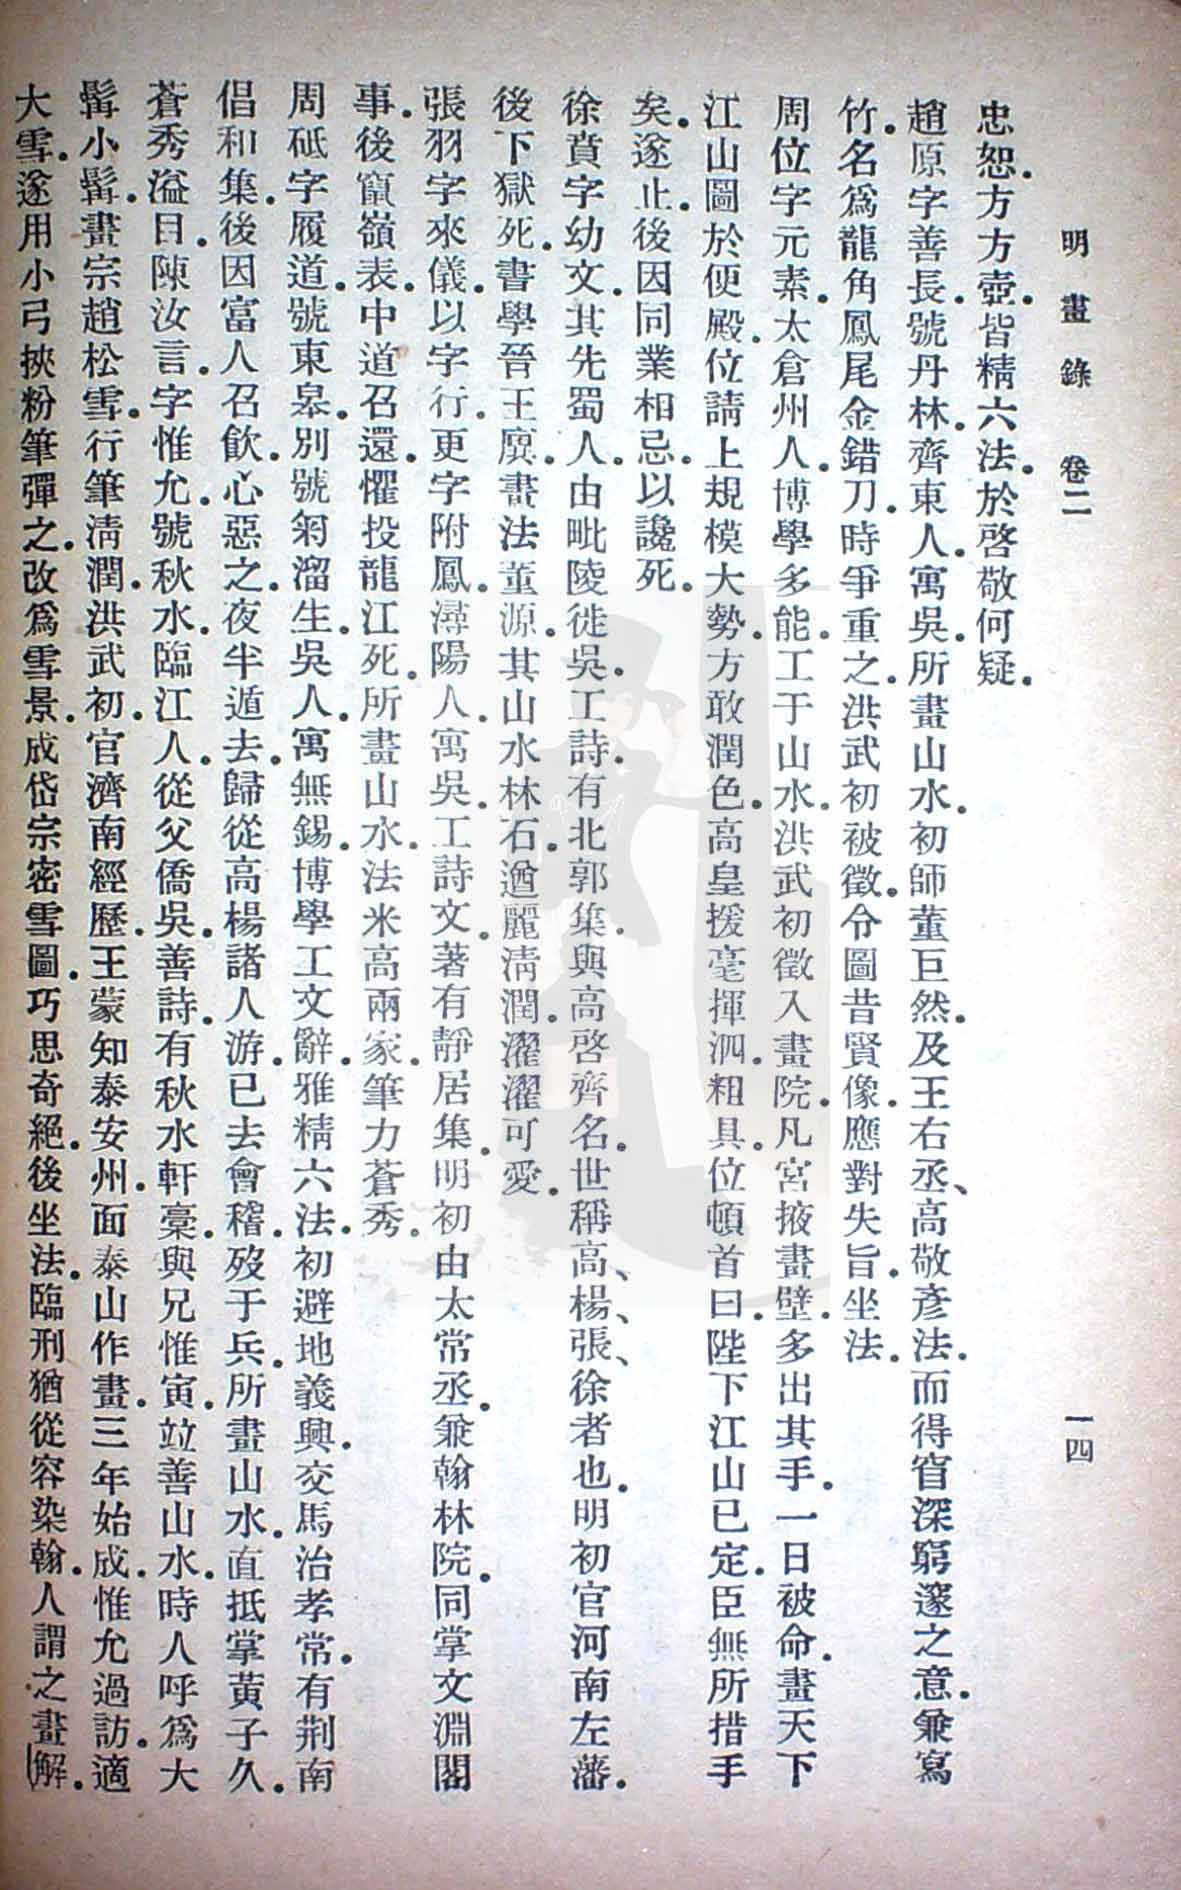 明畫錄 卷二 一四
忠恕.方方壺.皆精六法.於啓敬何疑.
趙原字善長.號丹林.齊東人.寓吳.所畫山水.初師董巨然.及王右丞、高敬彥法.而得窅深窮邃之意.兼寫
竹.名爲龍角鳳尾金錯刀.時爭重之.洪武初被徵.令圖昔賢像.應對失旨.坐法.
周位字元素.太倉州人.博學多能.工于山水.洪武初徵入畫院.凡宮掖畫壁.多出其手.一日被命.畫天下
江山圖於便殿.位請上規模大勢.方敢潤色.高皇援毫揮洒.粗具.位頓首曰.陛下江山已定.臣無所措手
矣.遂止.後因同業相忌.以讒死.
徐賁字幼文.其先蜀人.由毗陵徙吳.工詩.有北郭集.與高啓齊名.世稱高、楊、張、徐者也.明初官河南左藩.
後下獄死.書學晉王廙.畫法董源.其山水林石.遒麗淸潤.濯濯可愛.
張羽字來儀.以字行.更字附鳳.潯陽人.寓吳.工詩文.著有靜居集.明初由太常丞.兼翰林院.同掌文淵閣
事.後竄嶺表.中道召還.懼投龍江死.所畫山水.法米高兩家.筆力蒼秀.
周砥字履道.號東皋.別號匊溜生.吳人.寓無錫.博學工文辭.雅精六法.初避地義興.交馬治孝常.有荆南
倡和集.後因富人召飲.心惡之.夜半遁去.歸從高楊諸人游.已去會稽.歿于兵.所畫山水.直抵掌黃子久.
蒼秀溢目.陳汝言.字惟允.號秋水.臨江人.從父僑吳.善詩.有秋水軒稾.與兄惟寅.竝善山水.時人呼爲大
髯小髯.畫宗趙松雪.行筆淸潤.洪武初.官濟南經歷.王蒙知泰安州.面泰山作畫.三年始成.惟允過訪.適
大雪.遂用小弓挾粉筆彈之.改爲雪景.成岱宗密雪圖.巧思奇絕.後坐法.臨刑猶從容染翰.人謂之畫解.